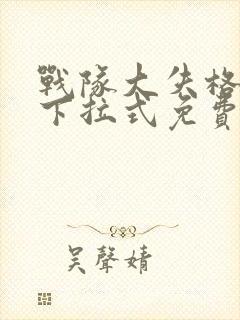 戰隊大失格
下拉式免費
吴聲婧